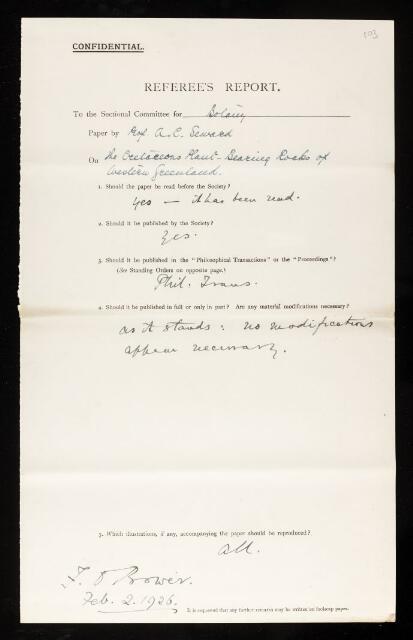 193
CONFIDENTIAL.
REFEREE'S REPORT.
To the Sectional Committee for Botany
Paper by Prof A. C. Seward
On The Cretaceous Plant-Bearing Rocks of
Western Greenland.
1. Should the paper be read before the Society?
Yes — it has been read.
2. Should it be published by the Society?
Yes.
3. Should it be published in the "Philosophical Transactions" or the "Proceedings"?
(See Standing Orders on opposite page.)
Phil. Trans.
4. Should it be published in full or only in part? Are any material modifications necessary?
as it stands: no modifications
appear necessary.
5. Which illustrations, if any, accompanying the paper should be reproduced?
All.
F. O Bower.
Feb. 2. 1926.
It is requested that any further remarks may be written on foolscap paper.